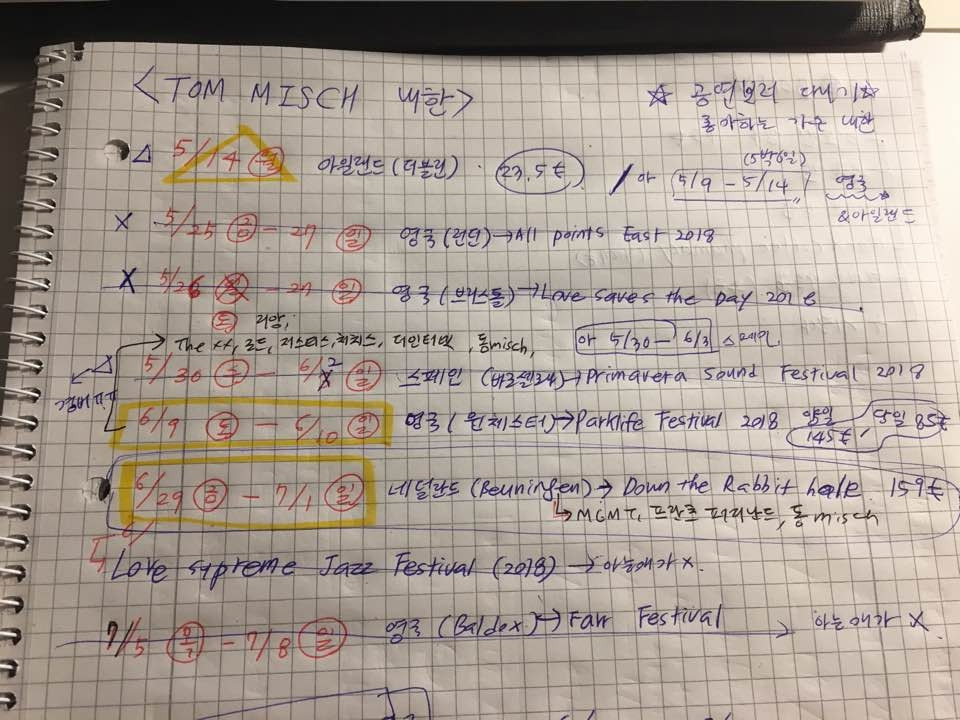 <TOM MISCH 내한>
☆ 공연보러 다니기☆
좋아하는 가수 내한
△ 5/14 월 아일랜드(더블린) · 23.5€ / 아 5/9 - 5/14 (5박6일) 영국
&아일랜드
X 5/25 금 - 27 일 영국(런던)→All points East 2018
X 5/26 - 27 일 영국(브리스톨)→Love saves the Day 2018
토 리암,
The xx, 로드, 저스티스, 처치스, 디인터넷, 톰misch, 아 5/30 - 6/3 스페인
△ 5/30 - 6/2 스페인 (바르셀로나)→Primavera Sound Festival 2018
6/9 토 - 6/10 일 영국(맨체스터)→Parklife Festival 2018 양일 145£, 당일 85£
6/29 금 - 7/1 일 네덜란드(Beuningen)→Down the Rabbit hole 159€
↳MGMT, 프란츠 퍼디난드, 톰misch
Love supreme Jazz Festival (2018) → 아는애가 x.
7/5 목 - 7/8 일 영국(Baldox)→Farr Festival → 아는애가 X